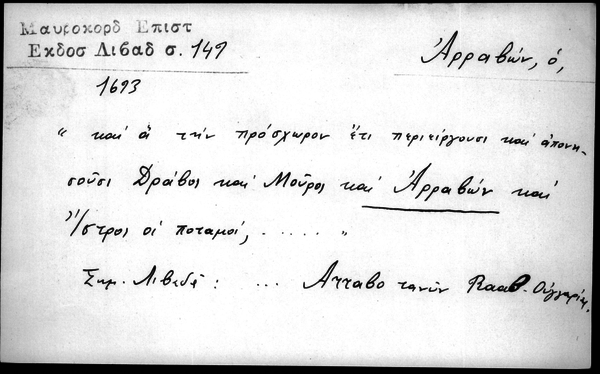 Μαυροκορδ Επιστ
Εκδοσ Λιβαδ σ. 149
Ἀρραβών, ὁ,
1693
“ καί ἃ τήν πρόσχωρον ἔτι περιείργουσι καί ἀπονη-
σοῦσι Δράβος καί Μοῦρος καί Ἀρραβών καί
Ἴστρος οἱ ποταμοί, ..... ”
Σημ. Λιβαδᾶ : ... Ατταβο τανῦν Rααβ. Οὑγγαρίας.